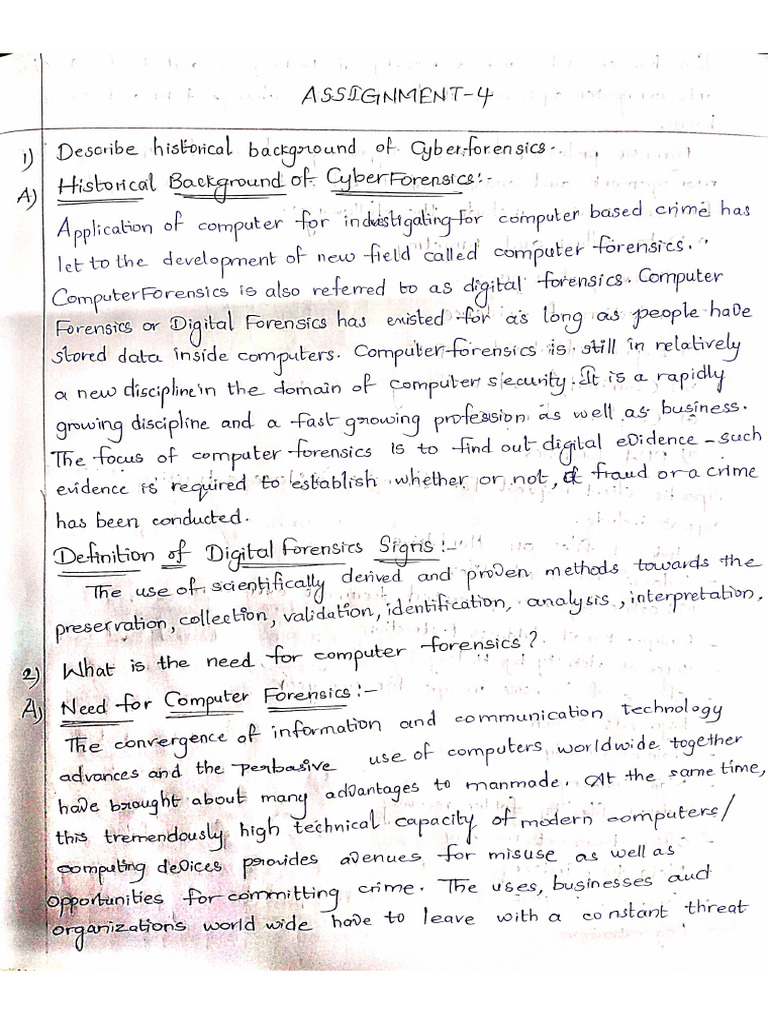 ASSIGNMENT-4
1) Describe historical background of Cyberforensics.
A) Historical Background of CyberForensics:-
Application of computer for indvestigating for computer based crime has
let to the development of new field called computer forensics.
ComputerForensics is also referred to as digital forensics. Computer
Forensics or Digital Forensics has existed for as long as people have
stored data inside computers. Computer forensics is still in relatively
a new discipline in the domain of computer security. It is a rapidly
growing discipline and a fast growing profession as well as business.
The focus of computer forensics is to find out digital evidence - such
evidence is required to establish whether or not, fraud or a crime
has been conducted.
Definition of Digital Forensics Signs:-
The use of scientifically derived and proven methods towards the
preservation, collection, validation, identification, analysis, interpretation,
2) What is the need for computer forensics?
A) Need for Computer Forensics:-
The convergence of information and communication technology
advances and the perbasive use of computers, worldwide together
have brought about many advantages to manmade. At the same time,
this tremendously high technical capacity of modern computers/
computing devices provides avenues for misuse as well as
opportunities for committing crime. The uses, businesses and
organizations world wide have to leave with a constant threat